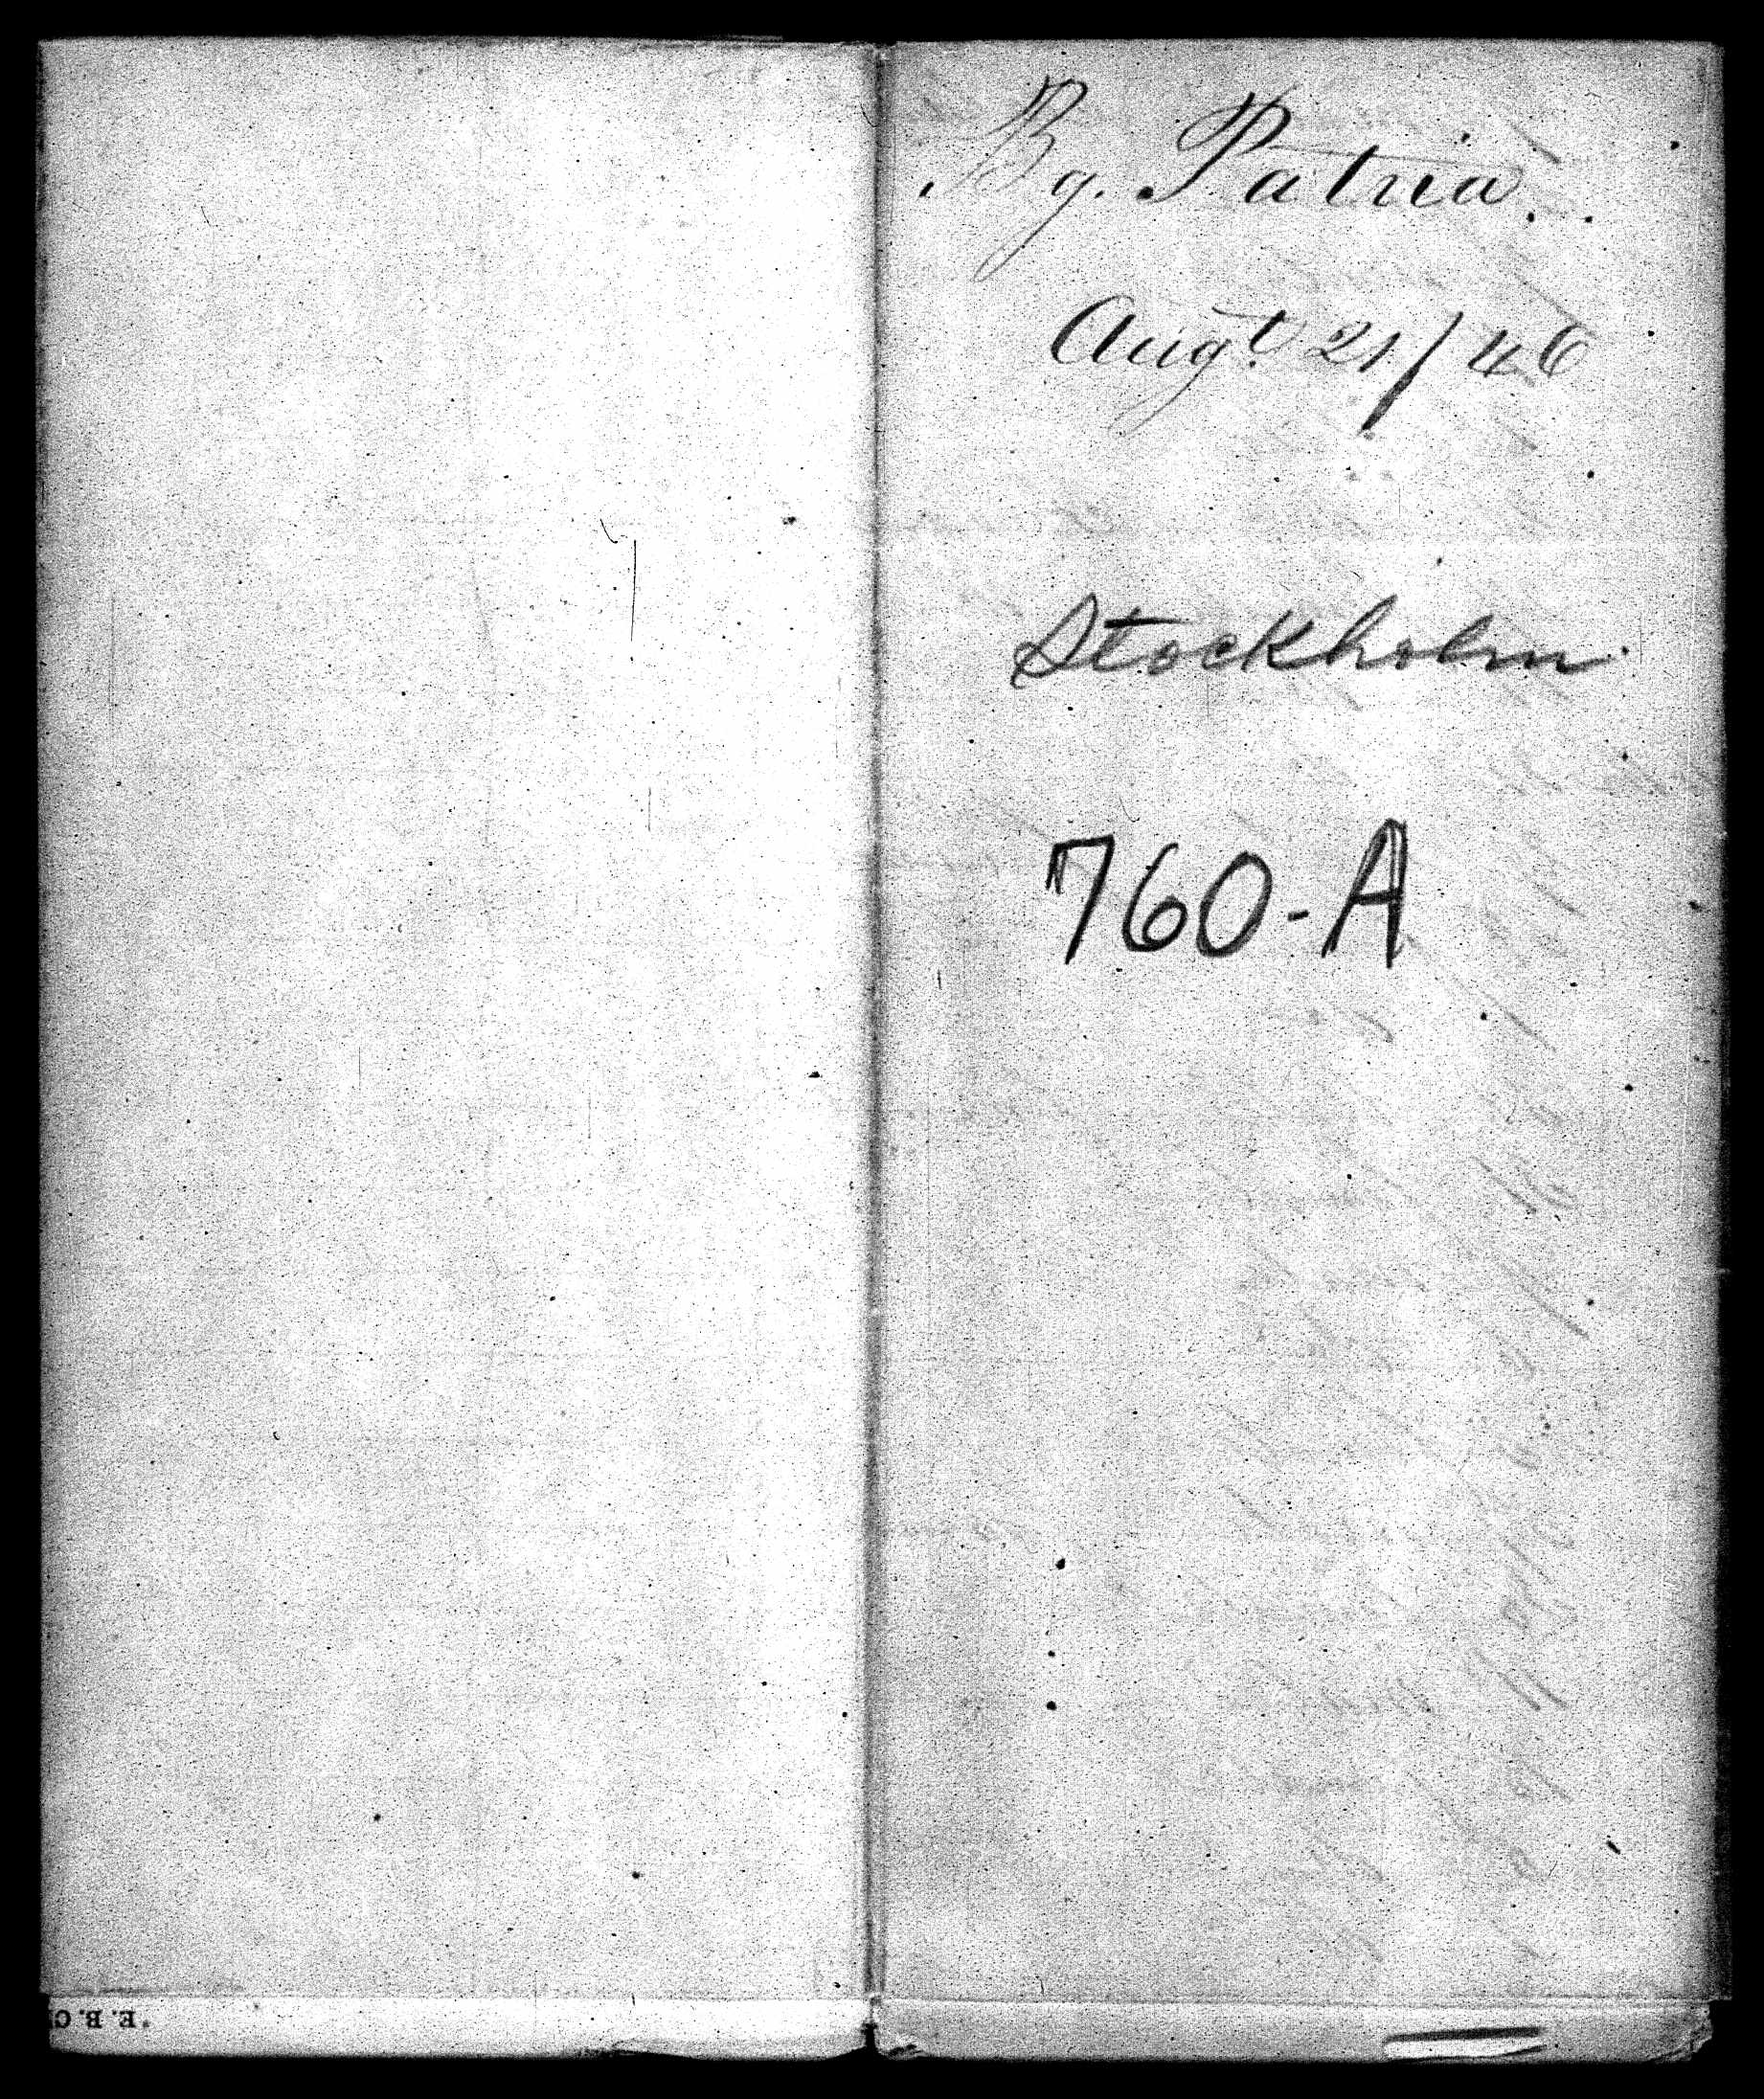 Bg. Patria.
Augt. 21/46
Stockholm
760-A
E. B. C